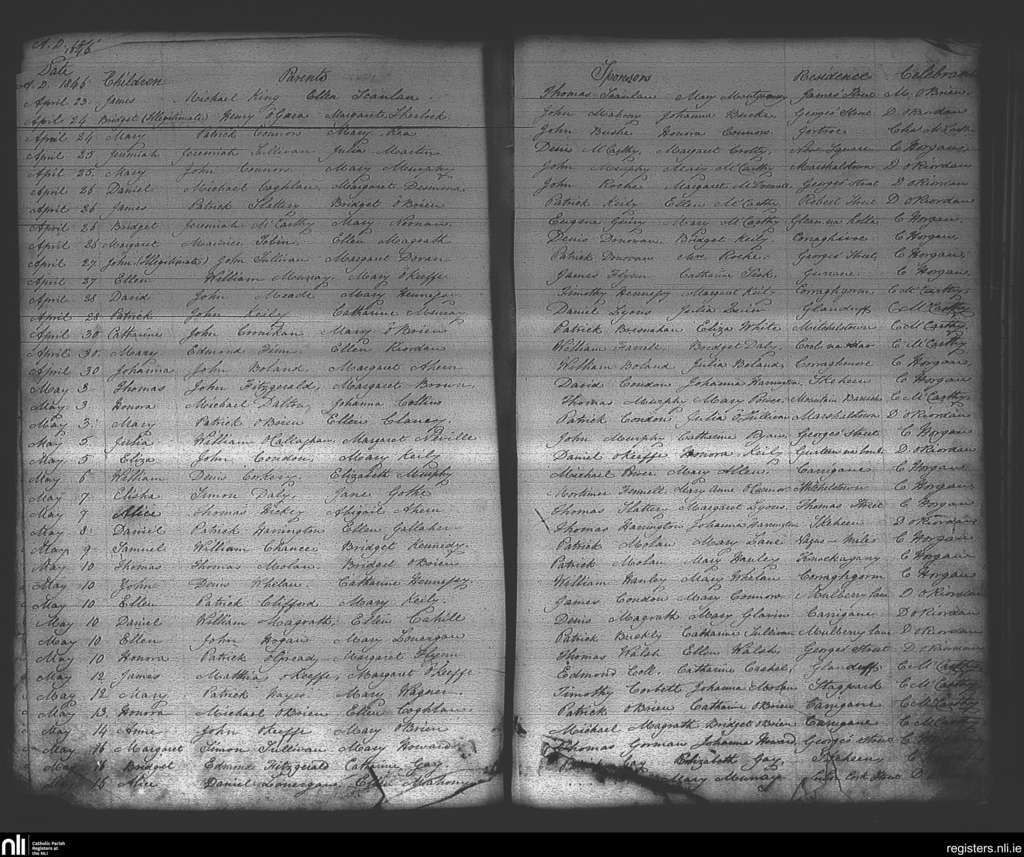 A.D. 1846
Date
A.D. 1846 Children Parents Sponsors Residence Celebrant
April 23 James Michael King Ellen Scanlan Thomas Scanlan Mary Montgomery James Street M. O'Brien
April 24 Bridget (Illegitimate) Henry O'Gara Margaret Sherlock John Mahony Johanna Burke George's Street D O'Riordan
April 24 Mary Patrick Connors Mary Rea John Burke Honora Connors
April 25 Jeremiah Jeremiah Sullivan Julia Martin Denis McCarthy Margaret Crotty New Square C Horgan
April 25 Mary John Connors Mary Murphy John Murphy Mary McCarthy Marshalstown D O'Riordan
April 26 Daniel Michael Coghlan Margaret Desmond John Roche Margaret George's Street D O'Riordan
April 26 James Patrick Slattery Bridget O'Brien Patrick Keily Ellen McCarthy Robert Street D O'Riordan
April 26 Bridget Jeremiah McCarthy Mary Noonan Eugene Mary McCarthy C Horgan
April 26 Margaret Maurice Tobin Ellen Magrath Denis Donovan Bridget Keily C Horgan
April 27 John (Illegitimate) John Sullivan Margaret Doran Patrick Donovan Mrs Roche George's Street C Horgan
April 27 Ellen William Murray Mary O'Keeffe James Flynn Catharine C Horgan
April 28 David John Meade Mary Hennessy Timothy Hennessy Margaret Keily Corraghgorm C McCarthy
April 28 Patrick John Keily Catharine Murray Daniel Lyons Julia Glanduff C McCarthy
April 30 Catharine John Mary O'Brien Patrick Bresnahan Eliza White Mitchelstown C McCarthy
April 30 Mary Edmond Finn Ellen Riordan William Farrell Bridget Daly C McCarthy
April 30 Johanna John Boland Margaret Ahern William Boland Julia Boland C Horgan
May 3 Thomas John Fitzgerald Margaret Brown David Condon Johanna Harrington Skeheen C Horgan
May 3 Honora Michael Dalton Johanna Collins Thomas Murphy Mary Power Mountain Barrack C McCarthy
May 3 Mary Patrick O'Brien Ellen Clancy Patrick Condon Julia O'Sullivan Marshalstown D O'Riordan
May 5 Julia William O'Callaghan Margaret Neville John Murphy Catharine Ryan George's Street C Horgan
May 5 Eliza John Condon Mary Keily Daniel O'Keeffe Honora Keily D O'Riordan
May 6 William Denis Corkery Elizabeth Murphy Michael Mary Allen Carrigane C Horgan
May 7 Elisha Simon Daly Jane Mortimer Anne O'Connor Mitchelstown C Horgan
May 7 Alice Thomas Hickey Abigail Ahern Thomas Slattery Margaret Lyons Thomas Street C Horgan
May 8 Daniel Patrick Harrington Ellen Gallaher Thomas Harrington Johanna Harrington Skeheen D O'Riordan
May 9 Samuel William Chancee Bridget Kennedy Patrick Molan Mary Lane C Horgan
May 10 Thomas Thomas Molan Bridget O'Brien Patrick Molan Mary Hanley Knockagany C Horgan
May 10 John Denis Whelan Catharine Hennessy William Hanley Mary Whelan Corraghgorm C Horgan
May 10 Ellen Patrick Clifford Mary Keily James Condon Mary Connors Mulberry lane D O'Riordan
May 10 Daniel William Magrath Ellen Cahill Denis Magrath Mary Glavin Carrigane D O'Riordan
May 10 Ellen John Hogan Mary Lonergan Patrick Buckly Catharine Sullivan Mulberry lane D O'Riordan
May 10 Honora Patrick O'Gready Margaret Flynn Thomas Walsh Ellen Walsh George's Street D O'Riordan
May 12 James Matthias O'Keeffe Margaret O'Keeffe Edmond Coll Catharine Casheh Glanduff C McCarthy
May 12 Mary Patrick Hayes Mary Wagner Timothy Corbett Johanna Molan Stagpark C McCarthy
May 13 Honora Michael O'Brien Ellen Coghlan Patrick O'Brien Catharine O'Brien Carrigane C McCarthy
May 14 Anne John O'Keeffe Mary O'Brien Michael Magrath Bridget O'Brien Carrigane C McCarthy
May 16 Margaret Simon Sullivan Mary Howard Thomas Gorman Johanna Howard George's Street C
May 16 Bridget Edmond Fitzgerald Catharine Gay Gay Elizabeth Gay Skeheen C
May 15 Alice Daniel Lonergan Ellen Mahony Mary Murray Cork Street D
nli Catholic Parish Registers at the NLI
registers.nli.ie